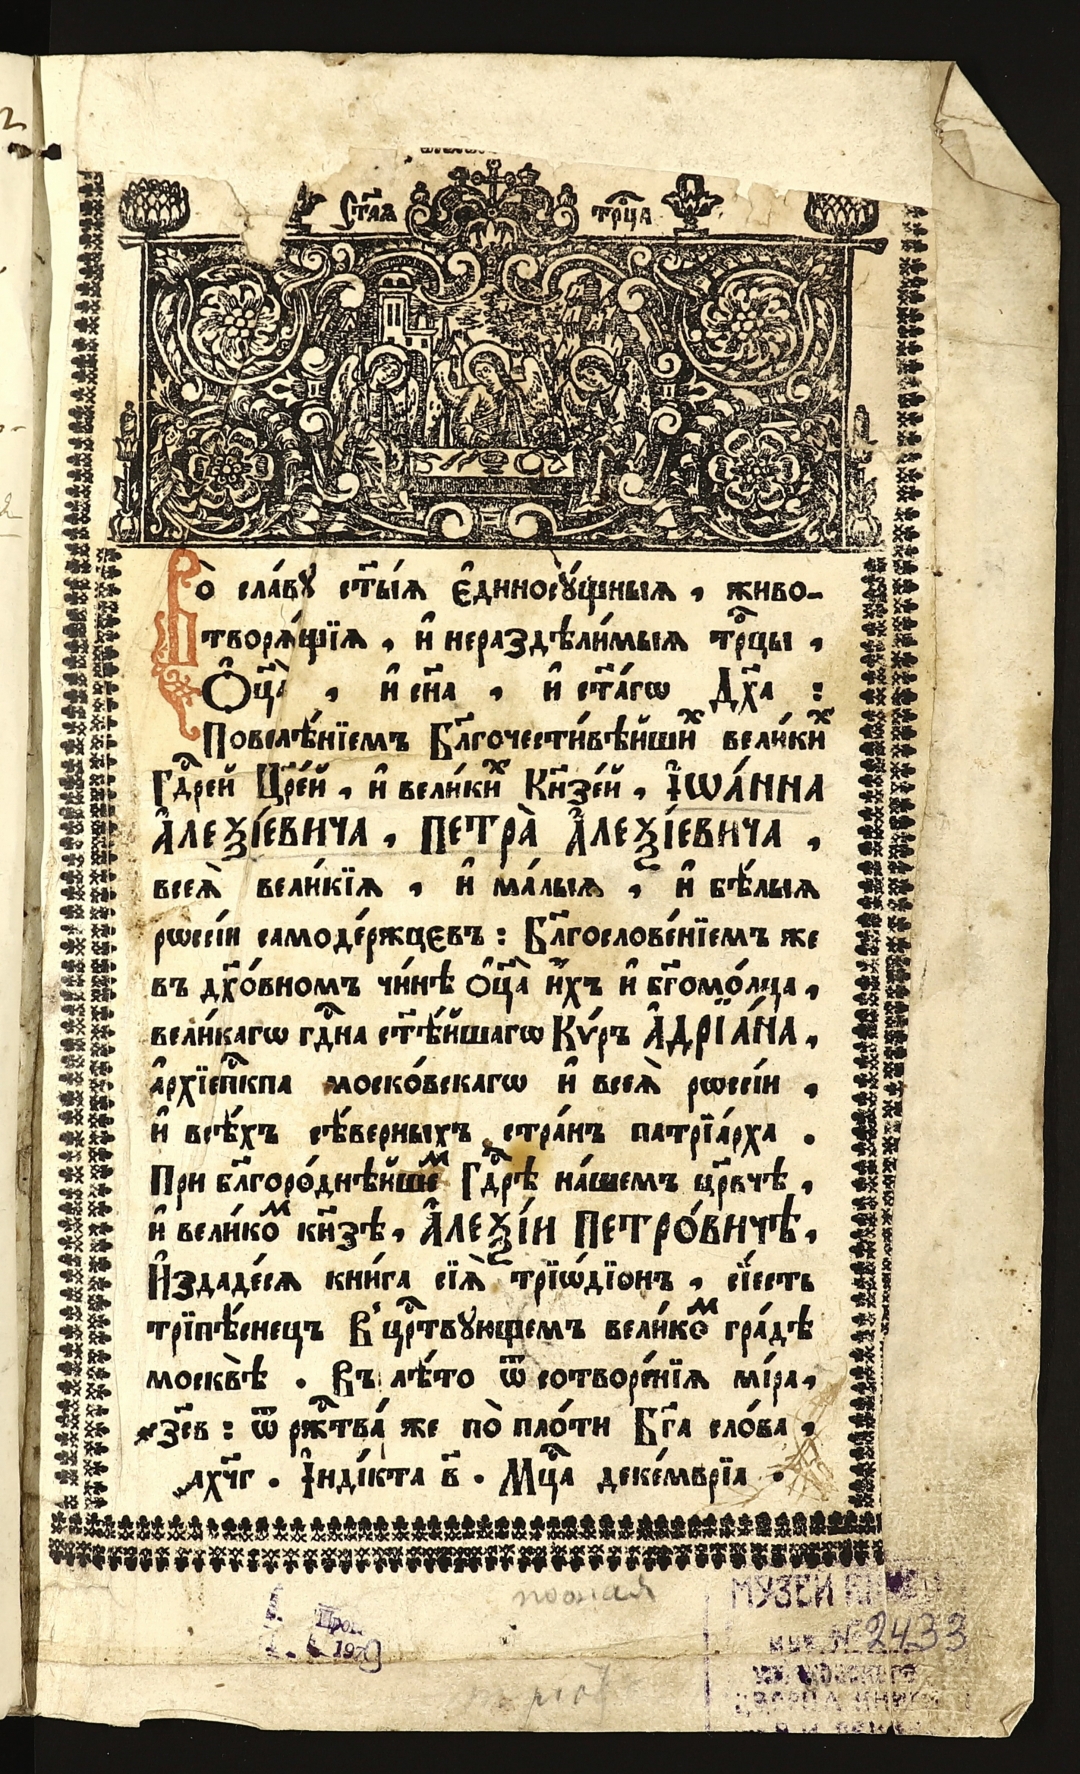 Ст҃ая трⷪ҇ца
Во̀ сла́вꙋ ст҃ы́ѧ є҆диносꙋ́щныѧ, живо-
творѧ́щїѧ, и҆ нераздѣли́мыѧ трⷪ҇цы,
Ѻ҆ц҃а̀, и҆ сн҃а, и҆ ст҃а́гѡ Дх҃а:
Повелѣ́нїемъ Бл҃гочести́вѣйшиⷯ вели́киⷯ
Гдⷭ҇рей Цр҃е́й, и҆ вели́киⷯ Кн҃зе́й, І҆ѡа́нна
А҆леѯі́евича, Петра̀ А҆леѯі́евича,
всеѧ̀ вели́кїѧ, и҆ ма́лыѧ, и҆ бѣ́лыѧ
рѡссі́и самоде́ржцєвъ: Бл҃гослове́нїемъ же
въ дх҃о́вномъ чи́нѣ ѻ҆ц҃а̀ и҆́хъ и҆ бг҃омо́лца,
вели́кагѡ гдⷭ҇на ст҃ѣ́йшагѡ Кѵ́ръ А҆дрїа́на,
а҆рхїепⷭ҇кпа моско́вскагѡ и҆ всеѧ̀ рѡссі́и,
и҆ всѣ́хъ сѣ́верныхъ стра́нъ патрїа́рха.
При бл҃горо́днѣйшеⷨ Гдⷭ҇рѣ на́шемъ цр҃вчѣ,
и҆ вели́коⷨ кн҃зѣ, А҆леѯі́и Петро́вичѣ,
И҆здаде́сѧ кни́га сїѧ̀ трїѡ́дїонъ, сїе́сть
трїпѣ́снецъ В̾ црⷭ҇твꙋющемъ вели́коⷨ гра́дѣ
москвѣ̀. Въ лѣ́то ѿ сотворе́нїѧ мі́ра,
҂зс҃в: ѿ ржⷭ҇тва́ же по̀ пло́ти Бг҃а сло́ва,
҂ахч҃г. І҆ндїкта в҃. Мцⷭ҇а деке́мврїа.
МУЗЕЙ
ИНВ № 2433